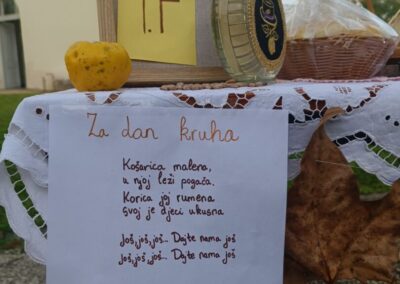 1.F
Za dan kruha
Košarica malena,
u njoj leži pogača.
Korica joj rumena
svoj je djeci ukusna
Još, još, još... Dajte nama još
Još, još, još... Dajte nama još